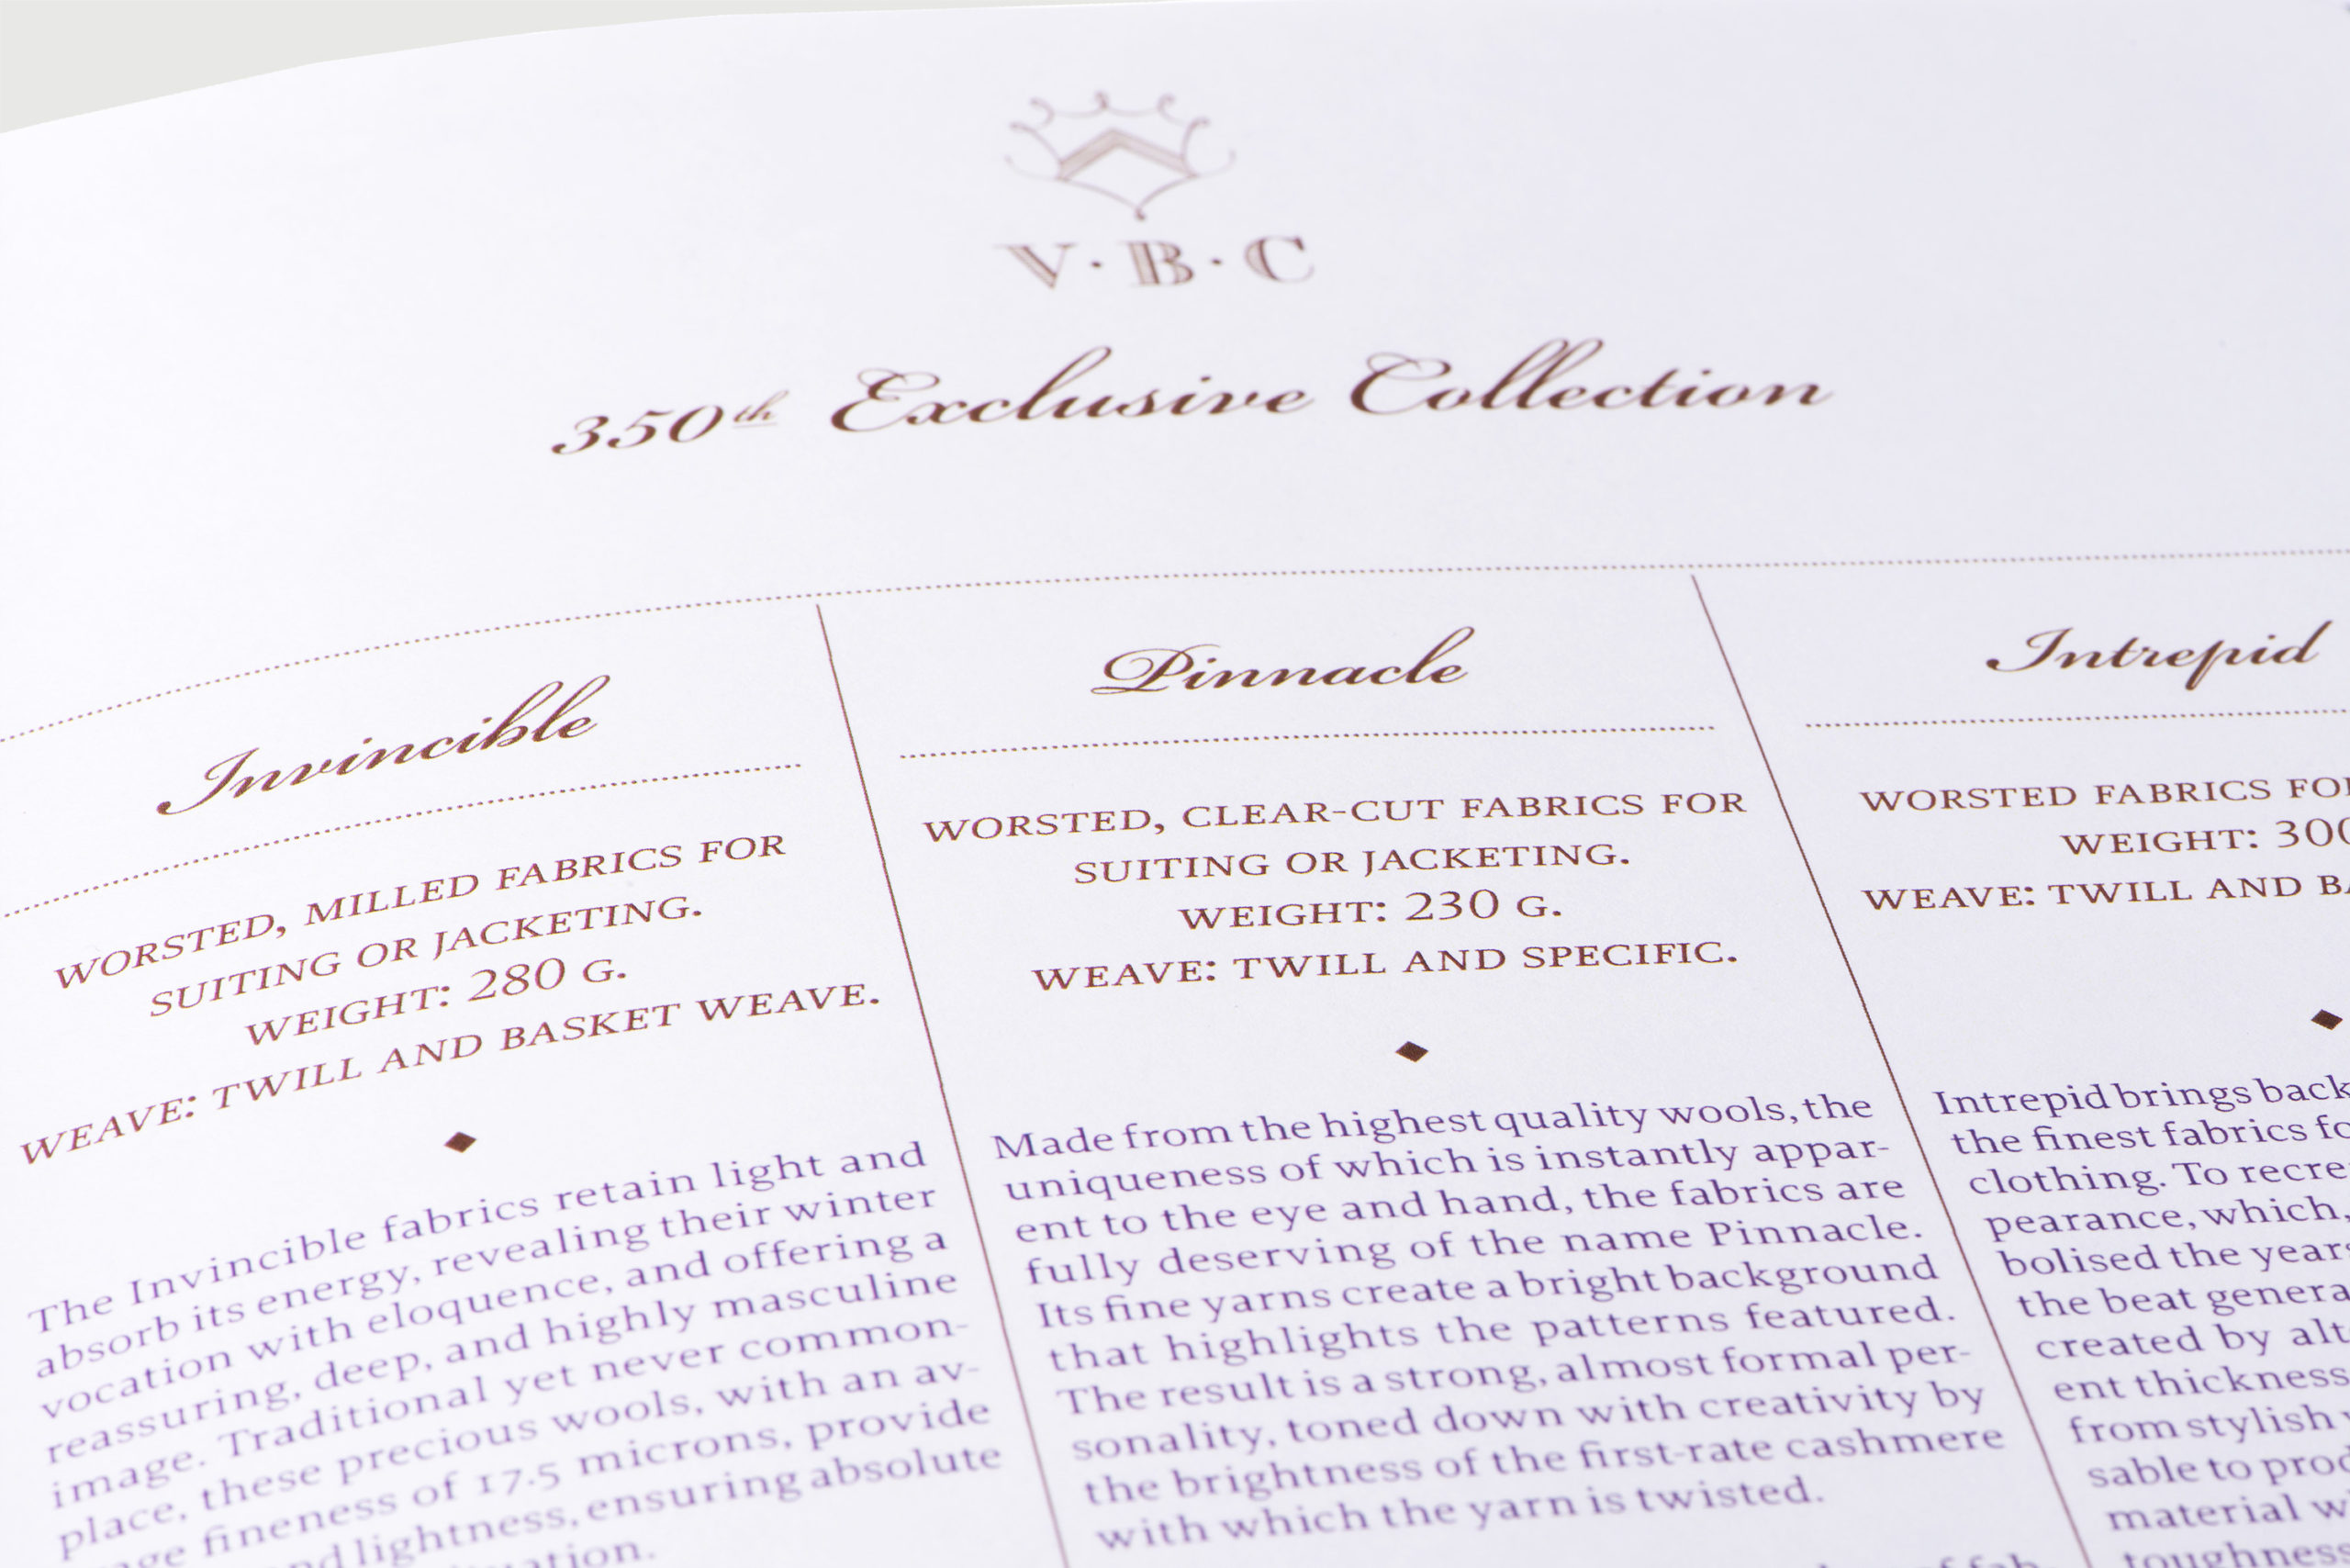 V·B·C
350th Exclusive Collection
Invincible
WORSTED, MILLED FABRICS FOR
SUITING OR JACKETING.
WEIGHT: 280 G.
WEAVE: TWILL AND BASKET WEAVE.
The Invincible fabrics retain light and
absorb its energy, revealing their winter
vocation with eloquence, and offering a
reassuring, deep, and highly masculine
image. Traditional yet never common-
place, these precious wools, with an av-
fineness of 17.5 microns, provide
lightness, ensuring absolute
Pinnacle
WORSTED, CLEAR-CUT FABRICS FOR
SUITING OR JACKETING.
WEIGHT: 230 G.
WEAVE: TWILL AND SPECIFIC.
Made from the highest quality wools, the
uniqueness of which is instantly appar-
ent to the eye and hand, the fabrics are
fully deserving of the name Pinnacle.
Its fine yarns create a bright background
that highlights the patterns featured.
The result is a strong, almost formal per-
sonality, toned down with creativity by
the brightness of the first-rate cashmere
with which the yarn is twisted.
Intrepid
WORSTED FABRICS
WEIGHT: 300
WEAVE: TWILL AND
Intrepid brings back
the finest fabrics
clothing. To
pearance, which,
bolised the
the beat
created by
ent thickness
from stylish
sable to
material
toughness